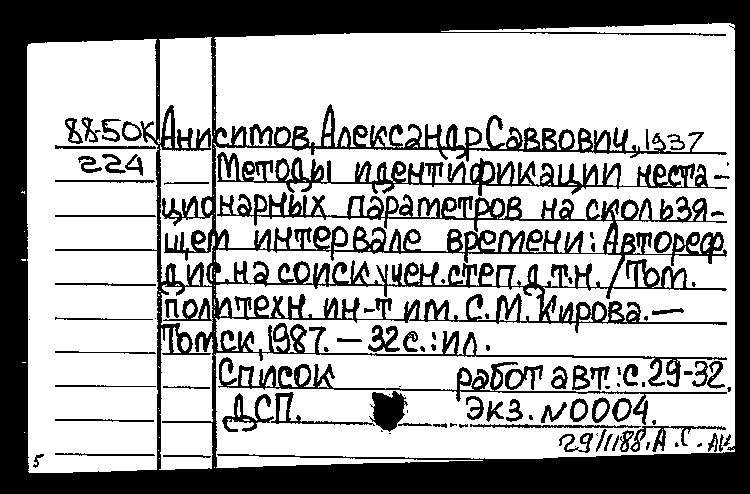 88-50К Анисимов, Александр Саввович, 1937
224 Методы идентификации неста-
ционарных параметров на скользя-
щем интервале времени: Автореф.
дис. на соиск. учен. степ. д.т.н. / Том.
политехн. ин-т им. С.М. Кирова. —
Томск, 1987. — 32 с.: ил.
Список работ авт.: с. 29-32.
ДСП. экз. №0004.
29/II88. А. С.
5